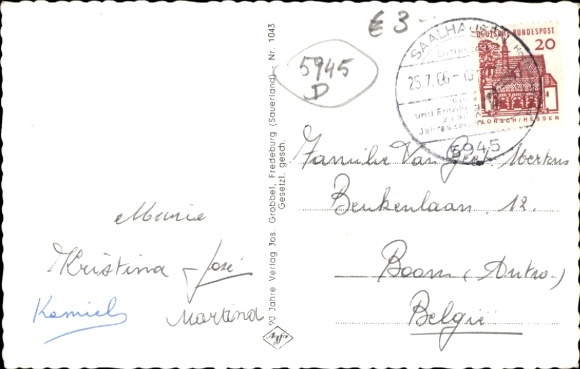 € 3-
5945
D
SAALHAUSEN
25.7.66-15
und Erholung
5945
DEUTSCHE BUNDESPOST
20
LORSCH/HESSEN
90 Jahre Verlag Jos. Grobbel, Fredeburg (Sauerland) - Nr. 1043
Gesetzl. gesch.
Familie Van Mertens
Beukenlaan. 12.
Boom (Antw.)
België
Maria
Kristina - José
Kamiel
Martina